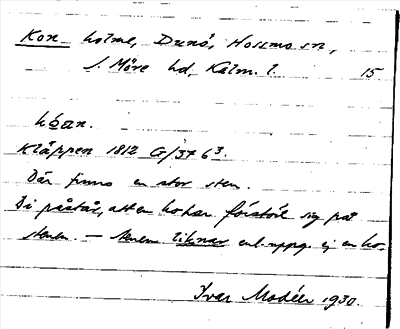 Kon holme, Dunö, Hossmo sn,
S. Möre hd, Kalm. l. 15
kọan.
Kläppen 1812 G/37 63.
Där finns en stor sten.
De påstår, att en ko har förstört sig på
stenen. — Stenen liknar enl. uppg. ej en ko.
Ivar Modéer 1930.